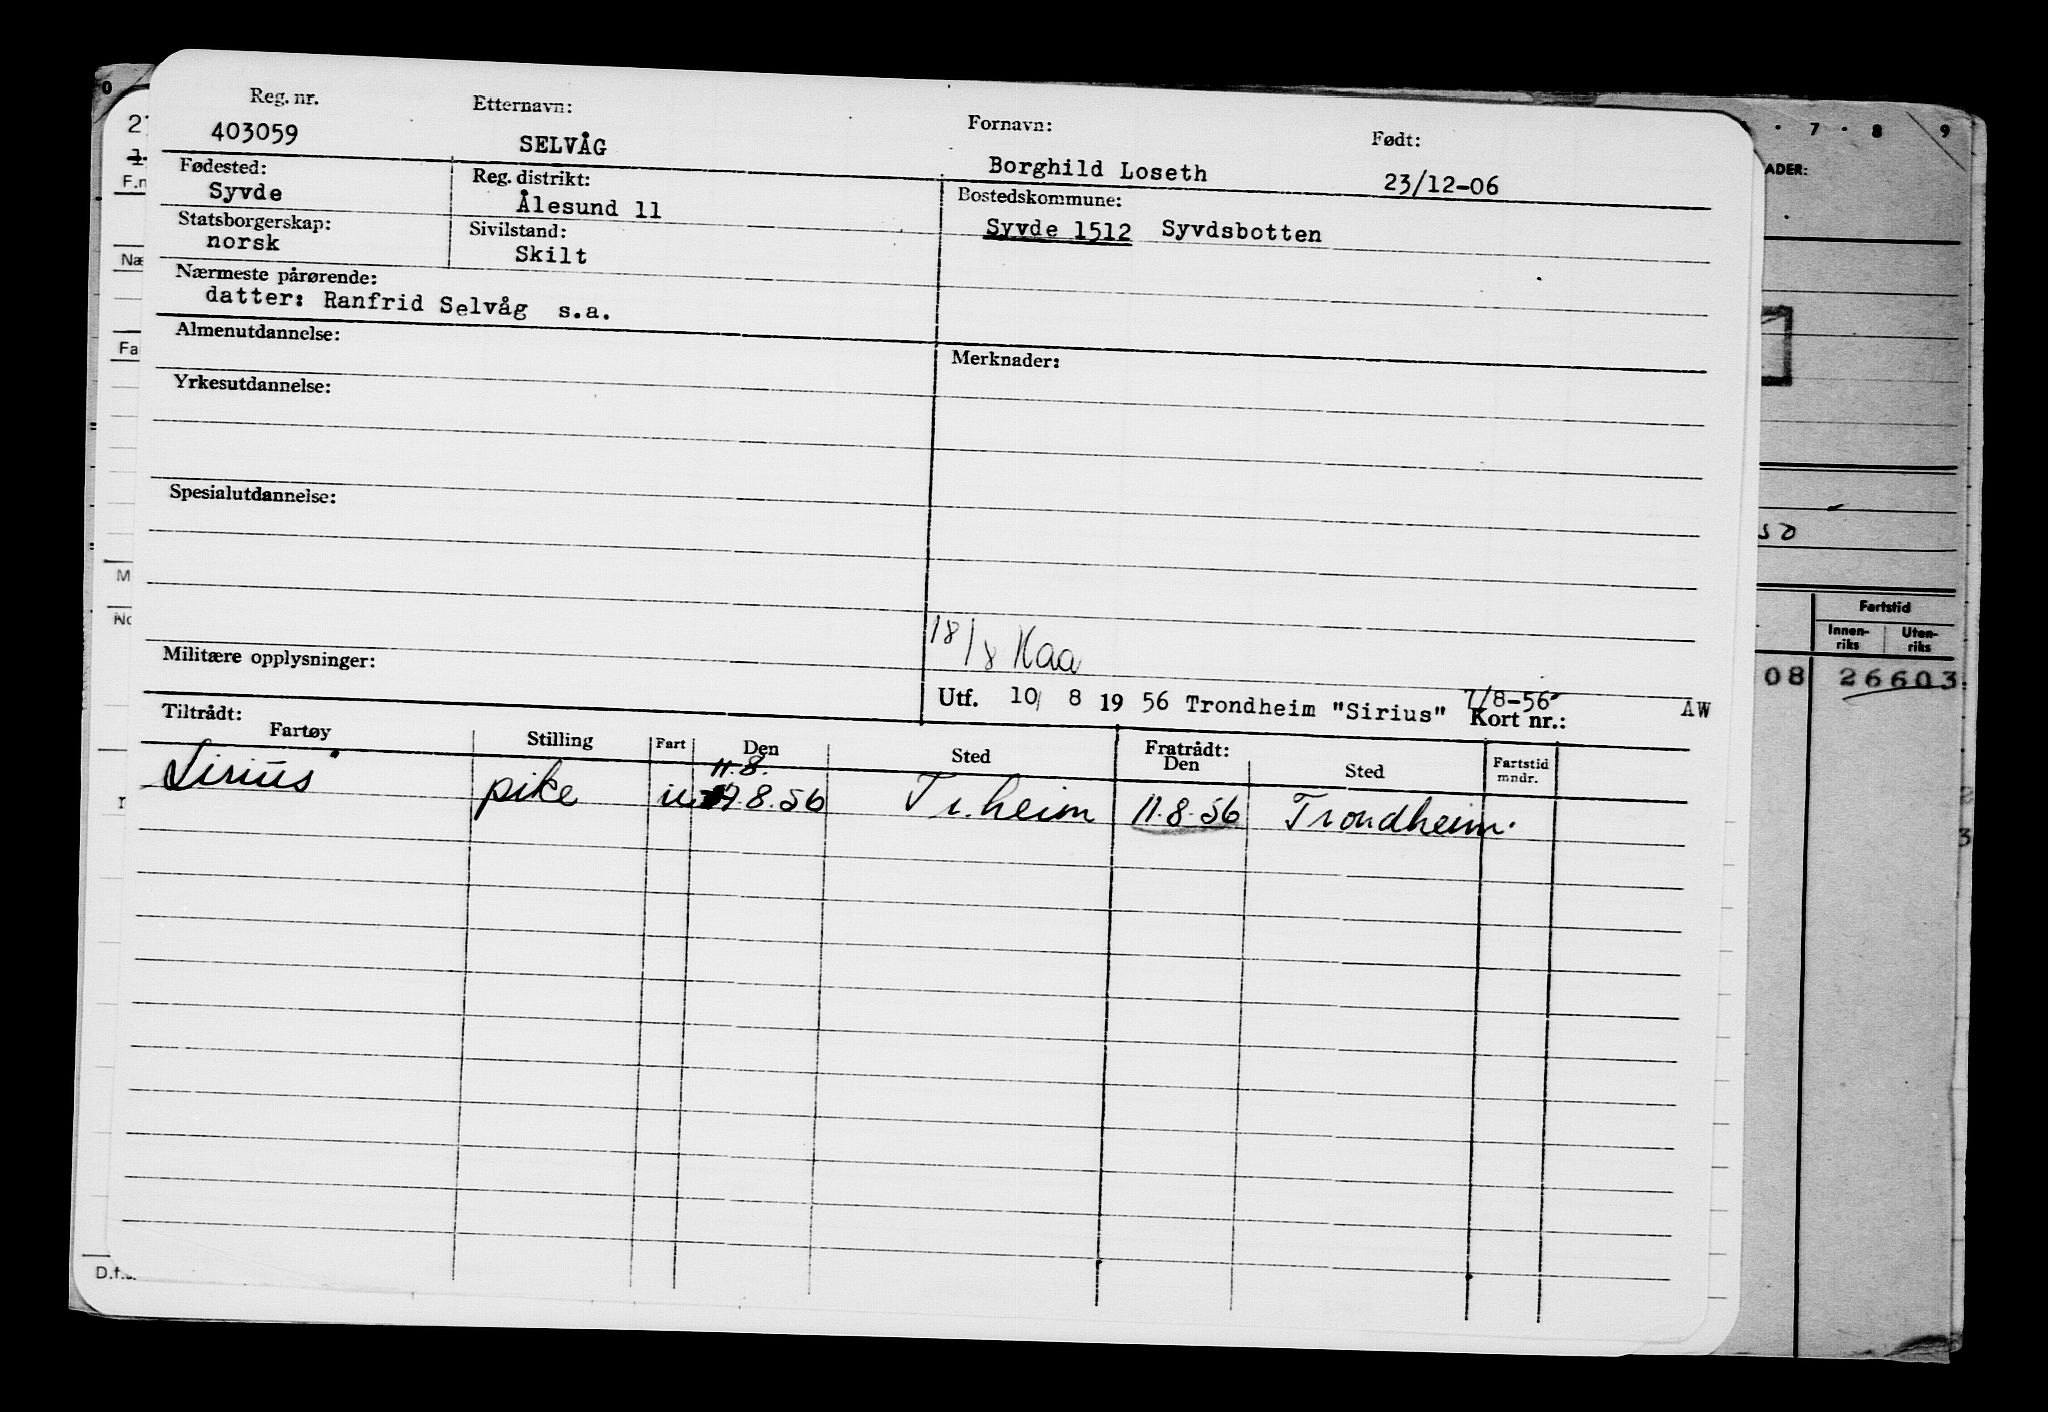 Reg. nr. Etternavn: Fornavn: Født:
403059 SELVÅG Borghild Loseth 23/12-06
Fødested: Reg. distrikt: Bostedskommune:
Syvde Ålesund 11 Syvde 1512 Syvdsbotten
Statsborgerskap: Sivilstand:
norsk Skilt
Nærmeste pårørende:
datter: Ranfrid Selvåg s.a.
Almenutdannelse: Merknader:
Yrkesutdannelse:
Spesialutdannelse:
18/8 Kaa
Militære opplysninger:
Utf. 10/ 8 19 56 Trondheim "Sirius" 7/8-56 Kort nr.: AW
Tiltrådt: Fratrådt:
Fartøy Stilling Fart Den Sted Den Sted Fartstid mndr.
11.8.
Sirius" pike u 7.8.56 Tr.heim 11.8.56 Trondheim.
7 8 9
ADER:
Fartstid
Innen-riks Uten-riks
08 26603
F.n
Næ
Fa
M
No
D.f.